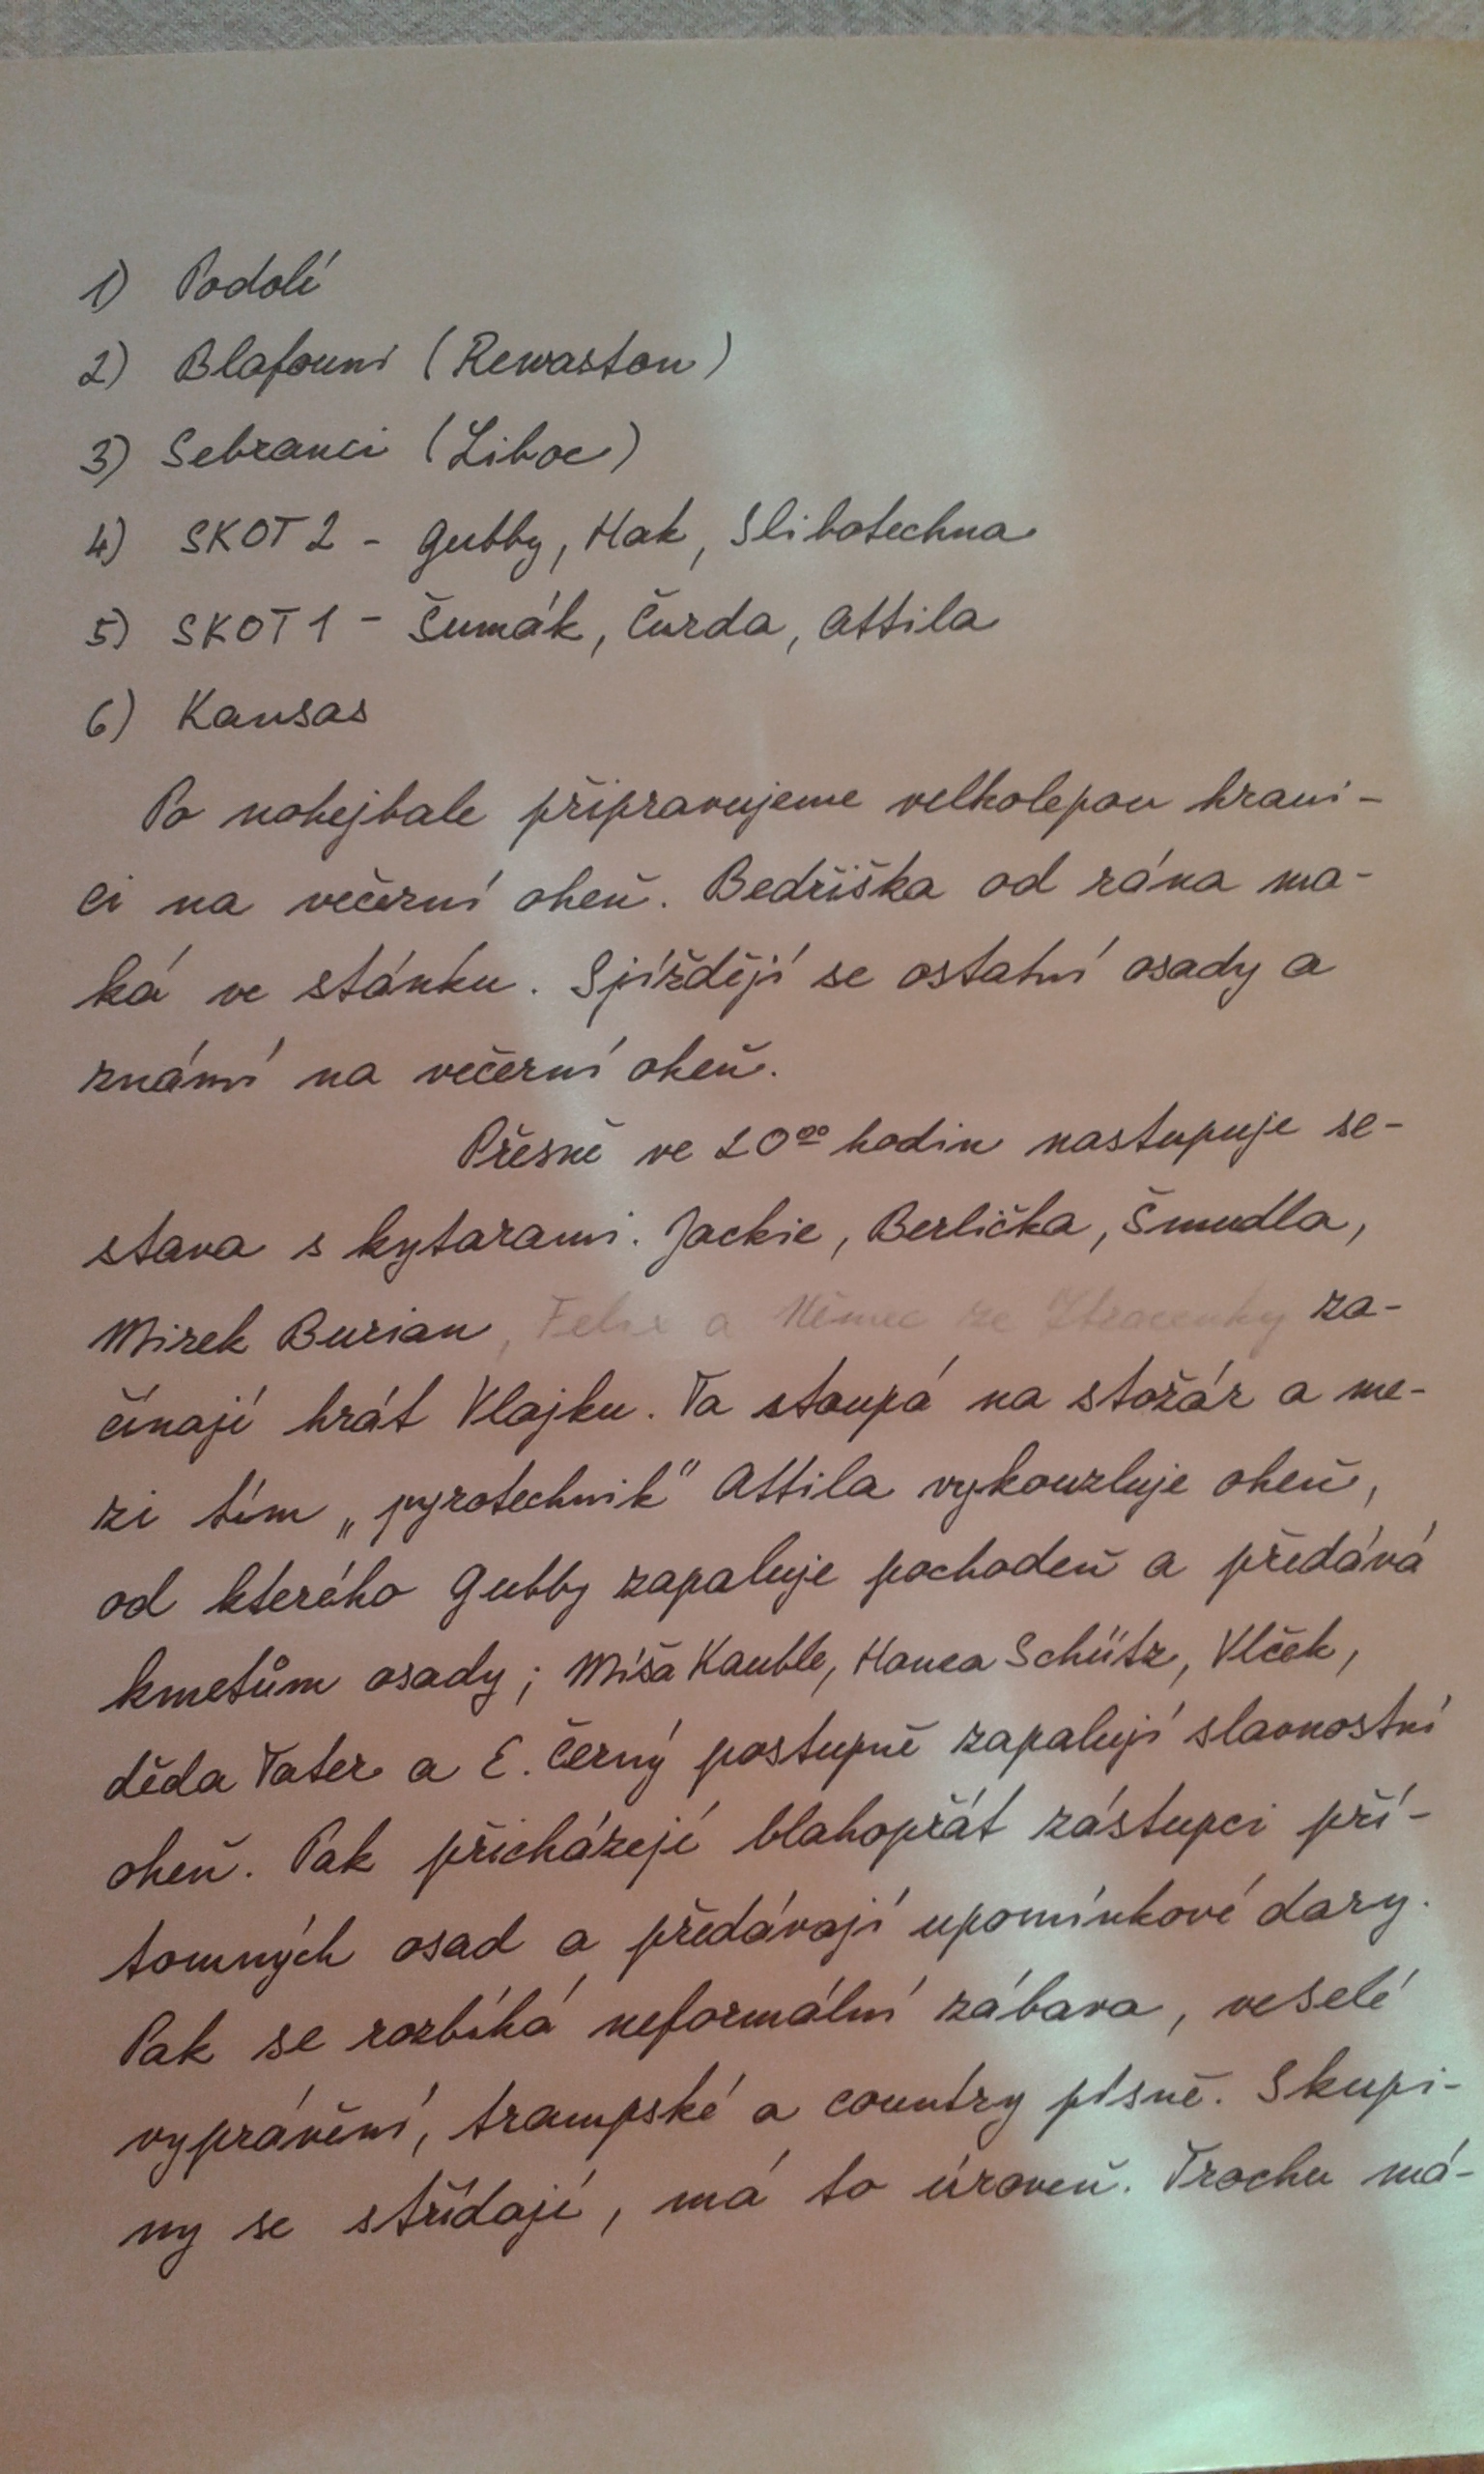 1) Podolí
2) Blafouni (Rewaston)
3) Sebranci (Liboc)
4) SKOT 2 - Gubby, Hak, Slibotechna
5) SKOT 1 - Šumák, Čurda, Attila
6) Kansas
Po nohejbale připravujeme velkolepou hrani-
ci na večerní oheň. Bedřiška od rána ma-
ká ve stánku. Sjíždějí se ostatní osady a
známí na večerní oheň.
Přesně ve 20⁰⁰ hodin nastupuje se-
stava s kytarami. Jackie, Berlička, Šmudla,
Mirek Burian, Felix a Němec ze Ztracenky za-
čínají hrát Vlajku. Ta stoupá na stožár a me-
zi tím „pyrotechnik" Attila vykouzluje oheň,
od kterého Gubby zapaluje pochodeň a předává
kmetům osady; Míša Kauble, Honza Schütz, Vlček,
děda Tater a E. Černý postupně zapalují slavnostní
oheň. Pak přicházejí blahopřát zástupci pří-
tomných osad a předávají upomínkové dary.
Pak se rozbíhá neformální zábava, veselé
vyprávění, trampské a country písně. Skupi-
ny se střídají, má to úroveň. Trochu má-